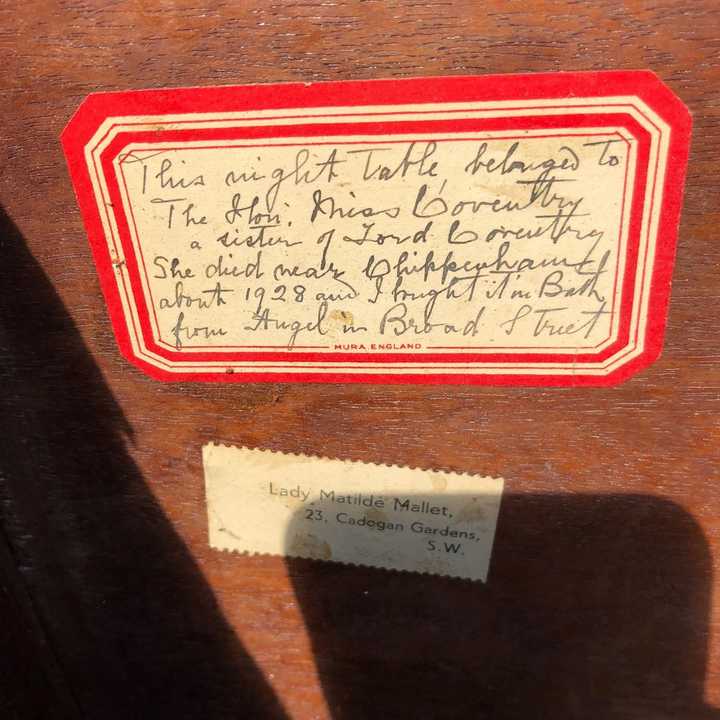 This night Table, belonged to
The Hon. Miss Coventry
a sister of Lord Coventry
She died near Chippenham
about 1928 and I bought it in Bath
from Angel in Broad Street
MURA, ENGLAND
Lady Matilde Mallet,
23, Cadogan Gardens,
S.W.